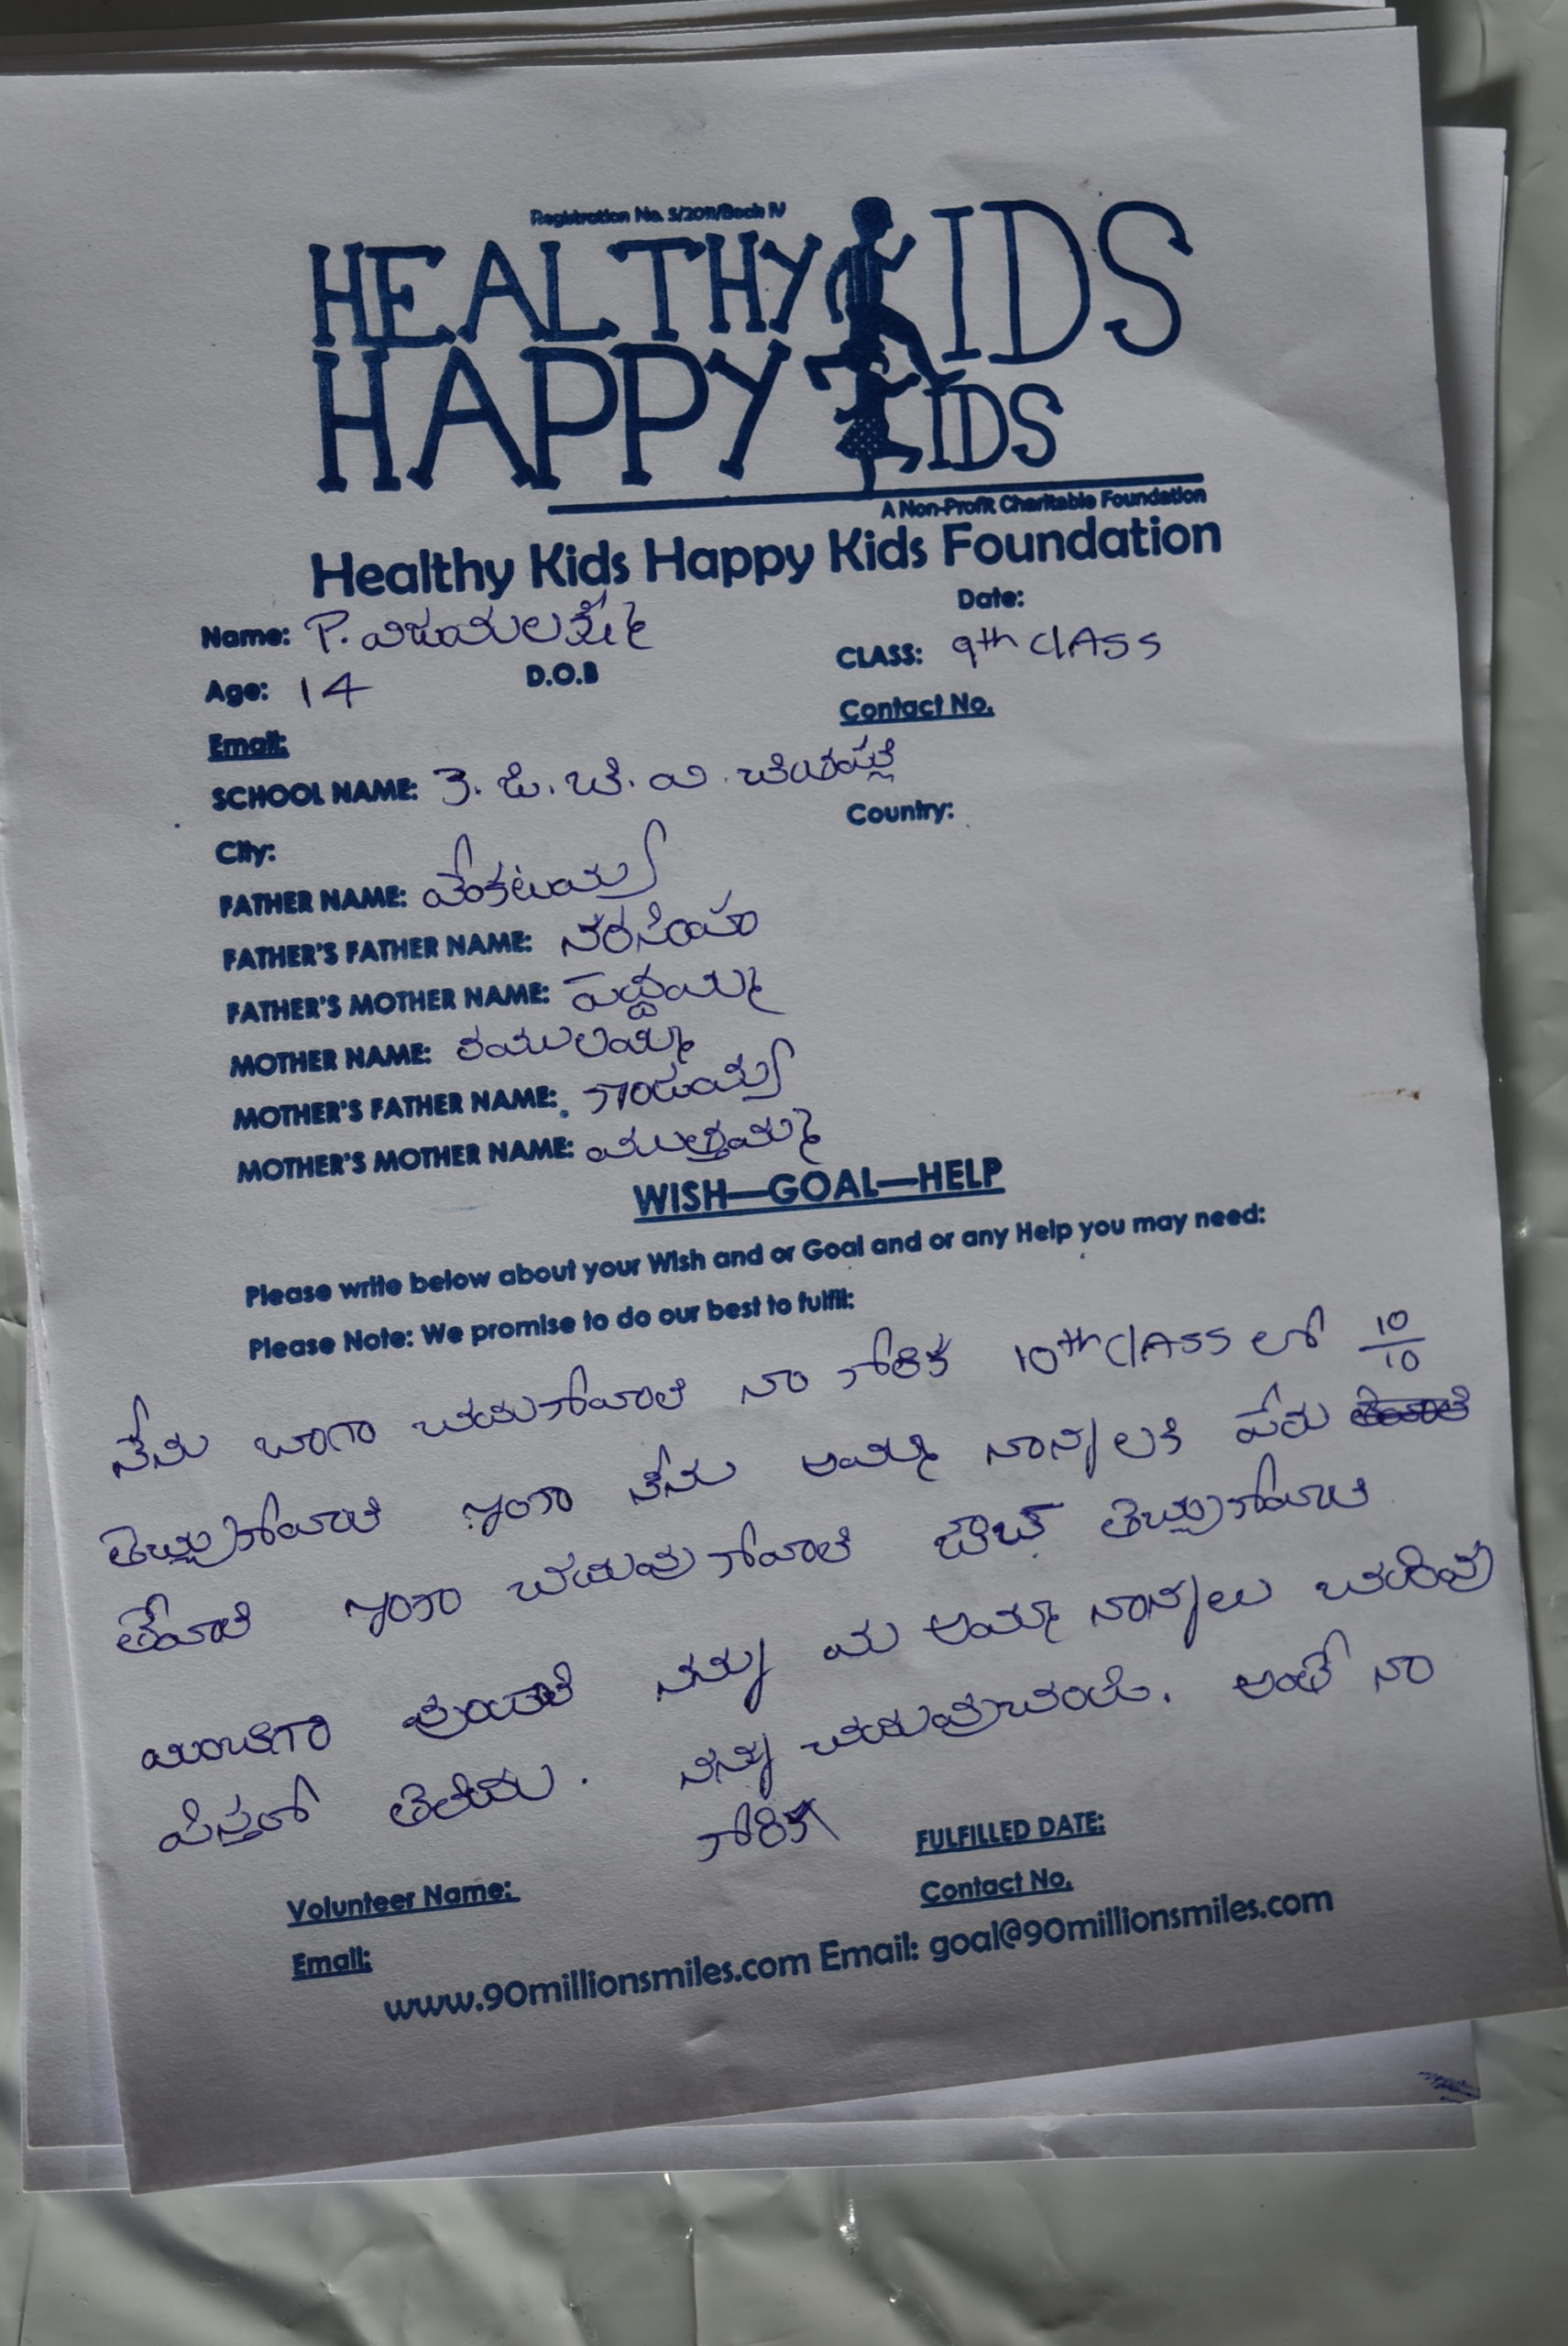 Registration No. 5/2011/Book IV
HEALTHY KIDS
HAPPY KIDS
A Non-Profit Charitable Foundation
Healthy Kids Happy Kids Foundation
Date:
Name: P. విజయలక్ష్మి
CLASS: 9th ClASS
Age: 14 D.O.B
Contact No.
Email:
SCHOOL NAME: కె. జి. బి. వి
Country:
City:
FATHER NAME: వెంకటయ్య
FATHER'S FATHER NAME: నరసింహ
FATHER'S MOTHER NAME: పెద్దమ్మ
MOTHER NAME: రాములమ్మ
MOTHER'S FATHER NAME:
MOTHER'S MOTHER NAME: ముత్తమ్మ
WISH—GOAL—HELP
Please write below about your Wish and or Goal and or any Help you may need:
Please Note: We promise to do our best to fulfil:
నేను బాగా చదుగోవాలి నా గోరిక 10th ClASS లో 10/10
తెచ్చుగోవాలి ఇంకా నేను అమ్మ నాన్నలకి పేరు
తేవాలి ఇంకా చదువుగోవాలి జాబ్ తెచ్చుగోవాలి
మంచిగా వుండాలి నన్ను మ అమ్మ నాన్నలు చదివి
పిస్తరో తెలియదు. నన్ను చదువుచండి. అంతే నా
గోరిక
FULFILLED DATE:
Volunteer Name:
Contact No.
Email:
www.90millionsmiles.com Email: goal@90millionsmiles.com